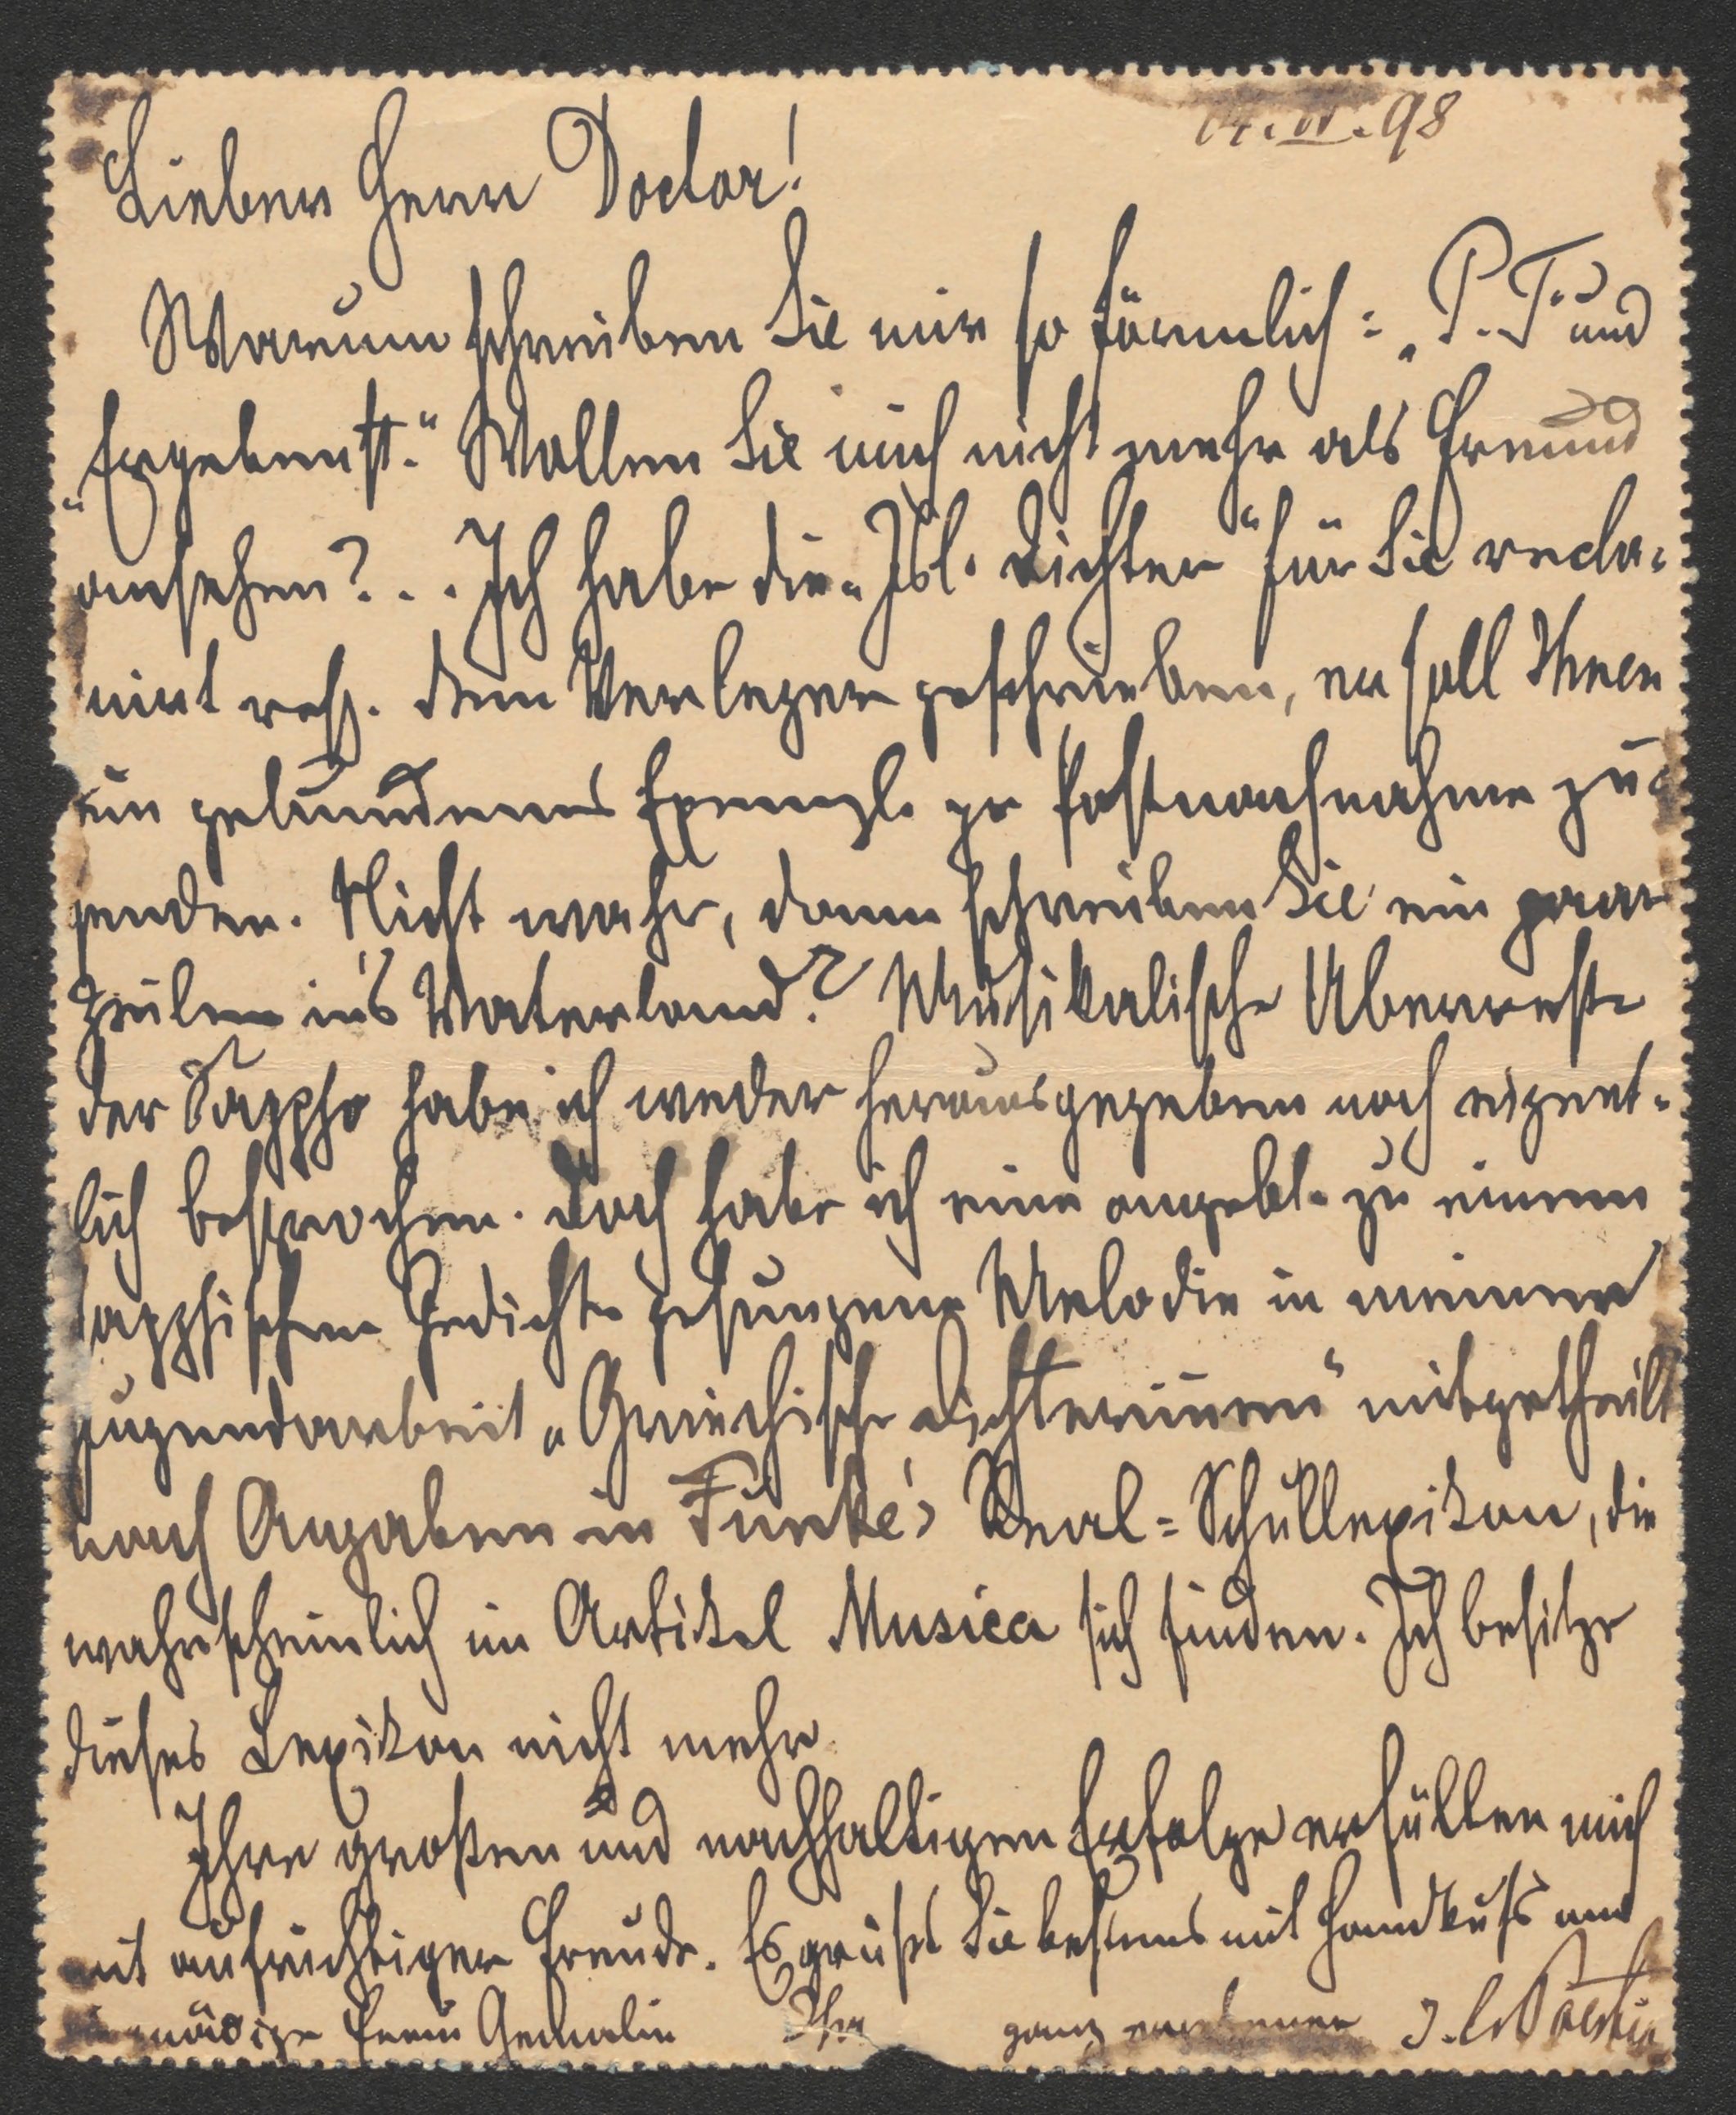 04. VI. 98
Lieber Herr Doctor!
Warum schreiben Sie mir so förmlich: „P. T." und
„Ergebenst." Wollen Sie mich nicht mehr als Freund
ansehen? . . . Ich habe die „Isl. Dichter" für Sie recla-
mirt resp. dem Verleger geschrieben, er soll Ihnen
ein gebundenes Exempl. per Postnachnahme zu-
senden. Nicht wahr, dann schreiben Sie ein paar
Zeilen in's Vaterland? Musikalische Überreste
der Sappho habe ich weder herausgegeben noch eigent-
lich besprochen. Doch habe ich eine angebl. zu einem
sapphischen Gedichte gesungene Melodie in meiner
Jugendarbeit „Griechische Dichterinnen" mitgetheilt
nach Angaben in Funke's Real-Schullexikon, die
wahrscheinlich im Artikel Musica sich finden. Ich besitze
dieses Lexikon nicht mehr.
Ihre großen und nachhaltigen Erfolge erfüllen mich
mit aufrichtiger Freude. Es grüßt Sie bestens mit Handkuß an
gnädige Frau Gemalin Ihr ganz ergebener J. C. Poestion